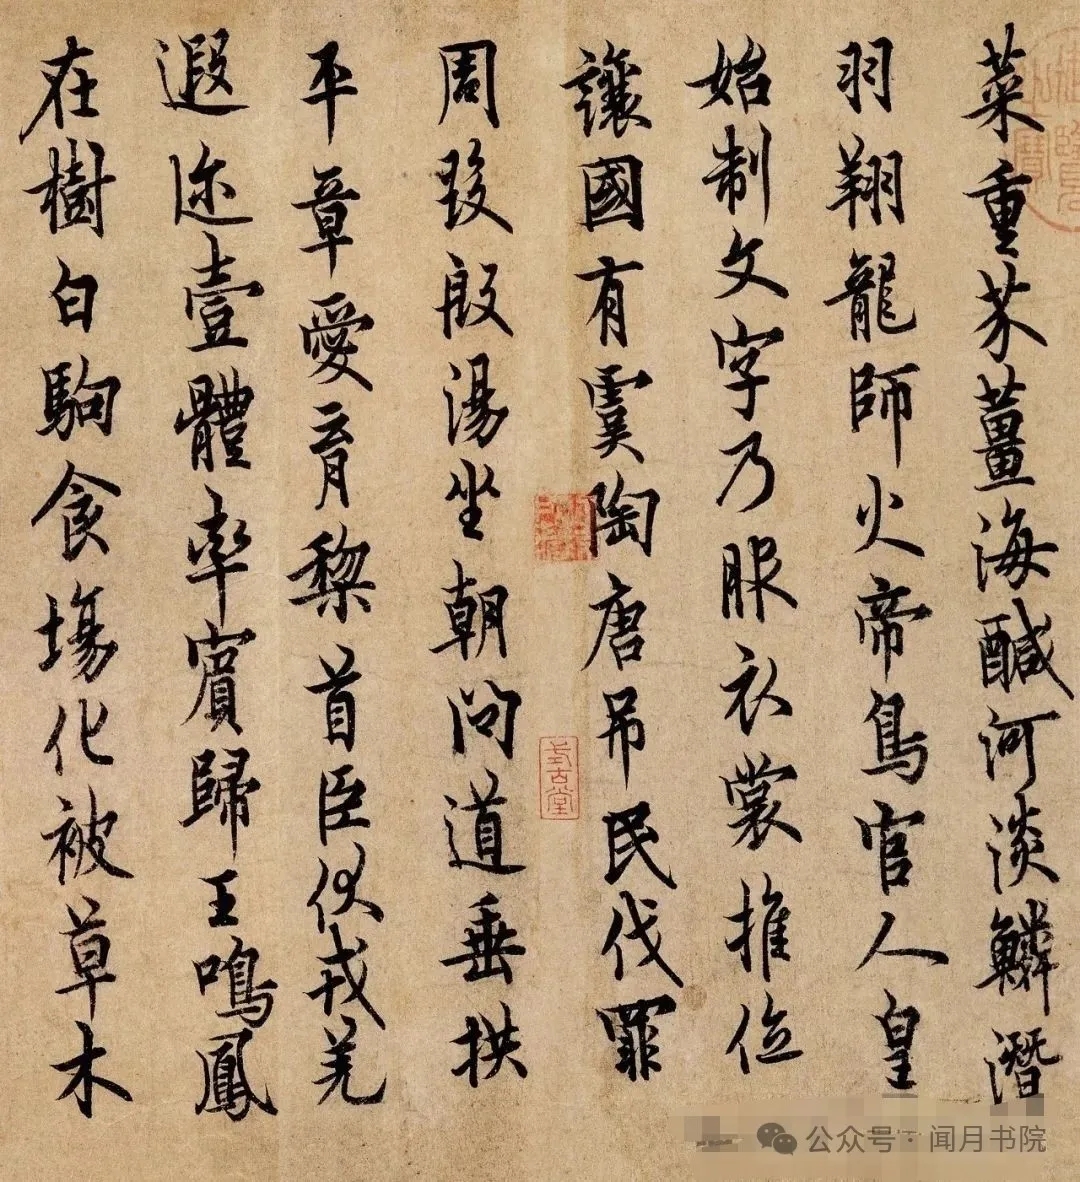 菜重芥薑海醎河淡鱗潛
羽翔龍師火帝鳥官人皇
始制文字乃服衣裳推位
讓國有虞陶唐吊民伐罪
周發殷湯坐朝問道垂拱
平章愛育黎首臣伏戎羌
遐迩壹體率賓歸王鳴鳳
在樹白駒食場化被草木
式古堂
公众号·闻月书院